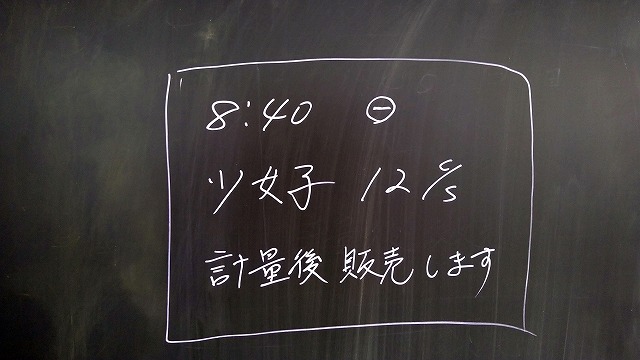 8:40 ㊀
少女子 12 c/s
計量後 販売します